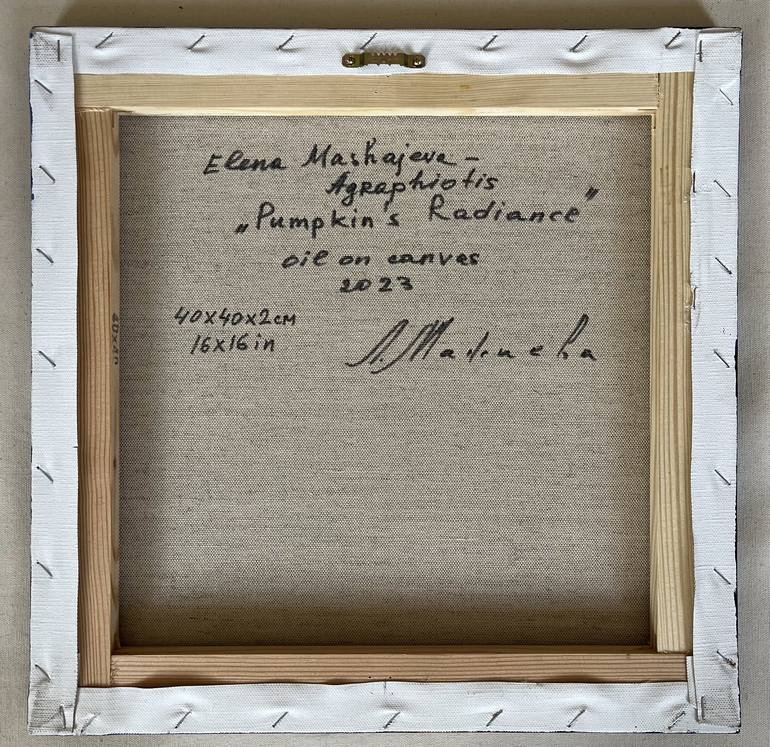 Elena Mashajeva –
Agraphiotis
„Pumpkin's Radiance”
oil on canvas
2023
40x40x2см
16x16in